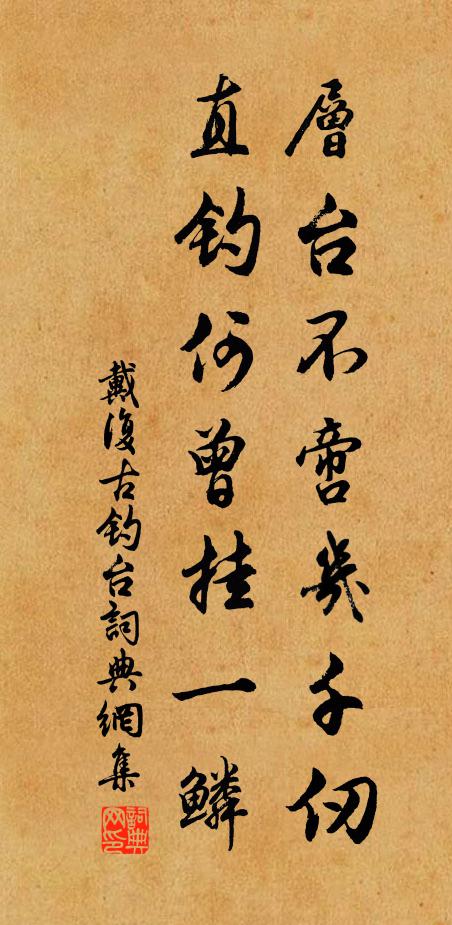 層台不啻幾千仞
直钓何曾挂一鳞
戴復古钓台詞典網集
詞典网印